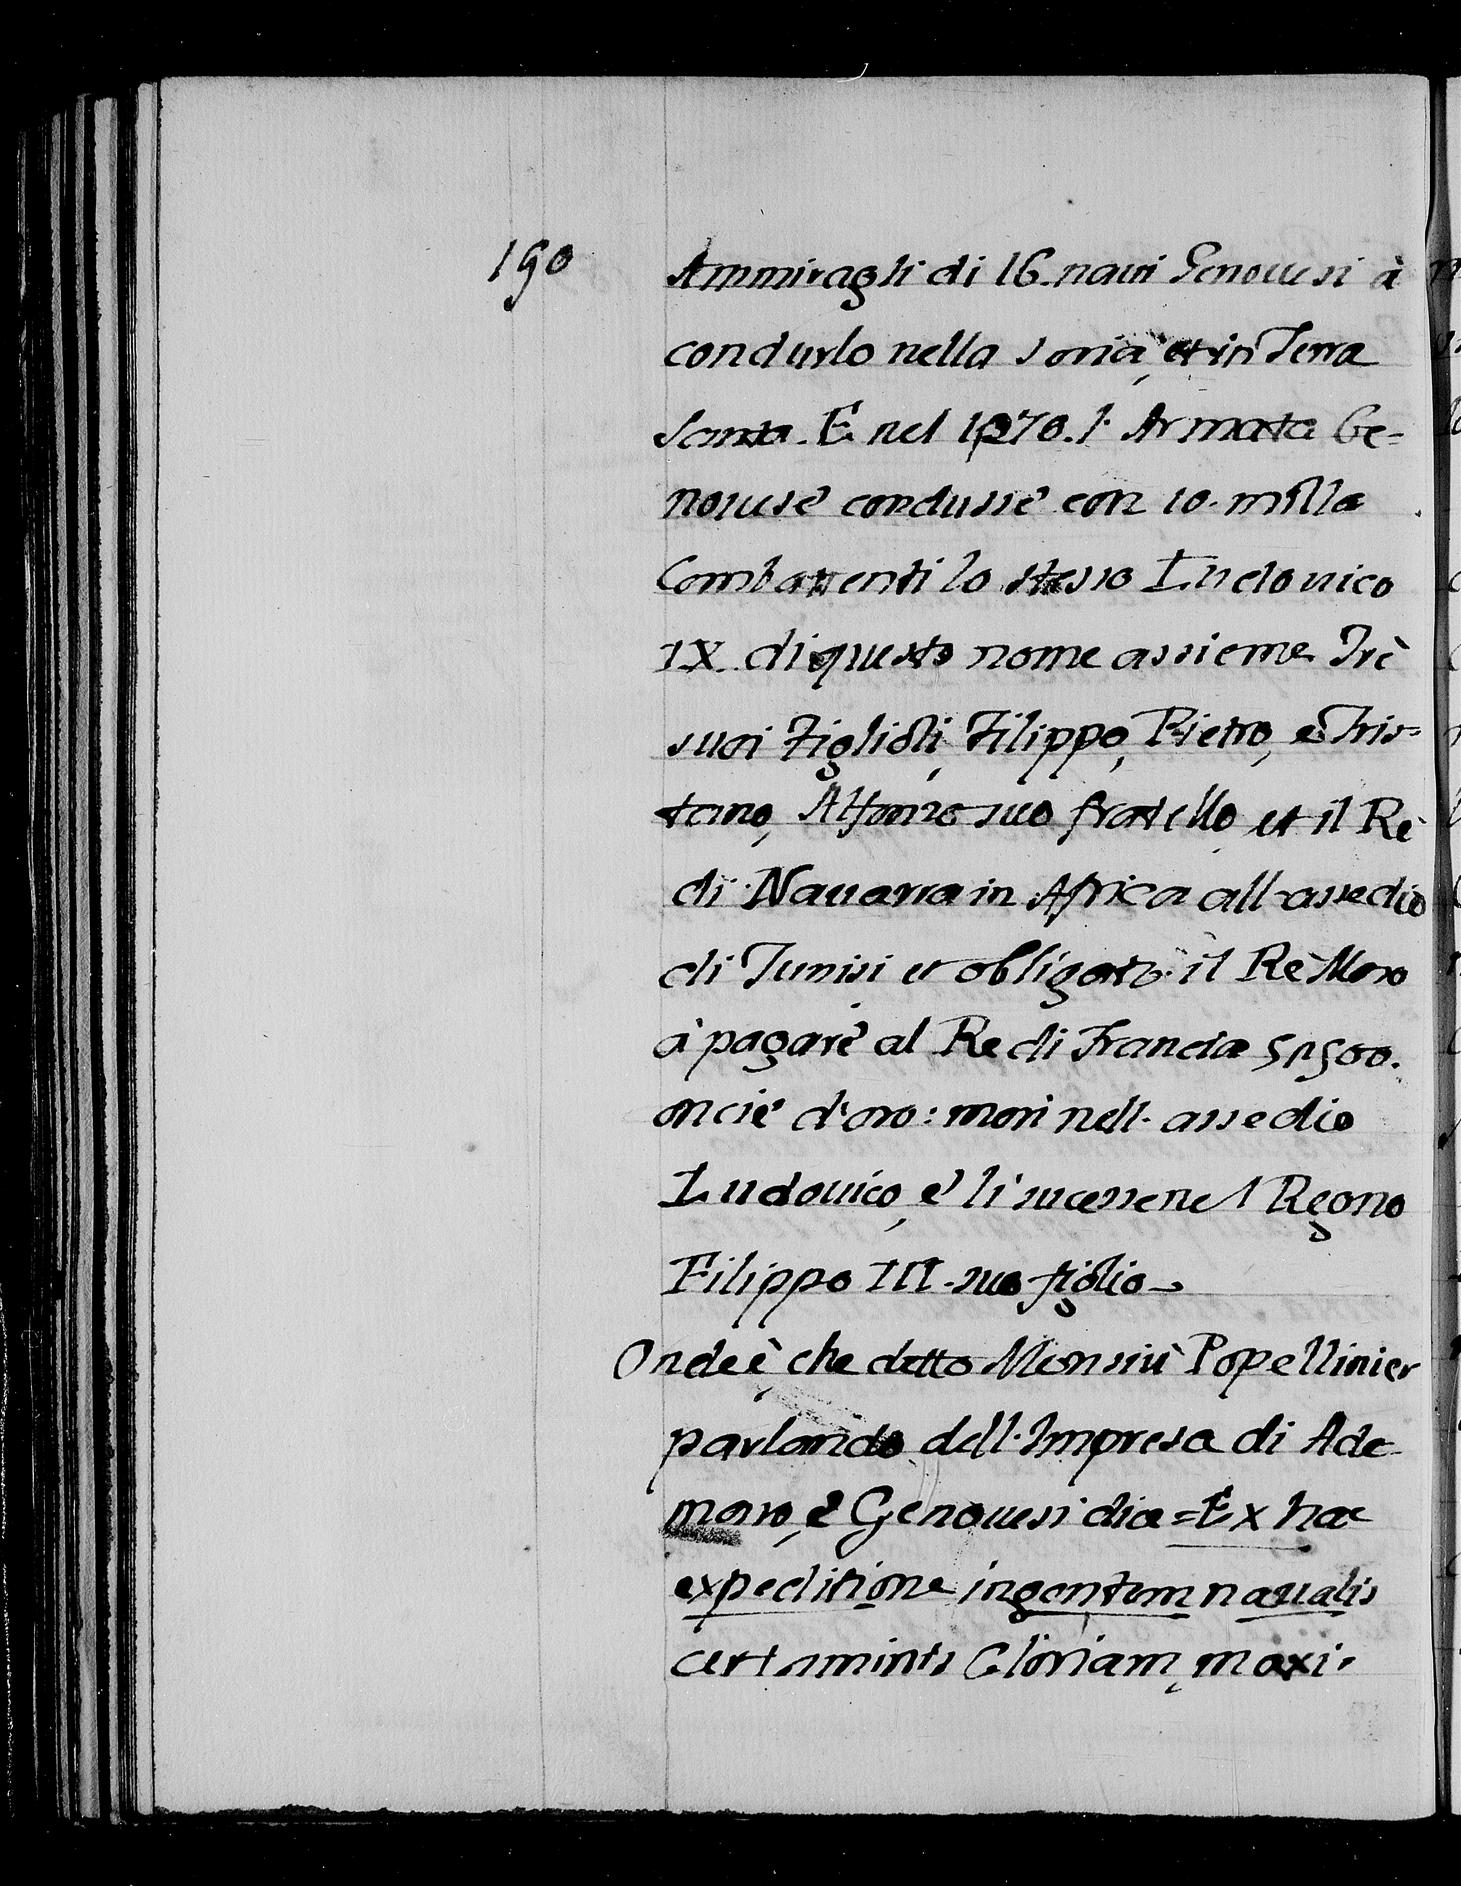 190
Ammiragli di 16. naui Genouesi à
condurlo nella Soria, et in Terra
Santa. E nel 1270. l'Armata Ge=
nouese condusse con 10. milla
Combattenti lo stesso Ludouico
IX. di questo nome assieme Trè
suoi Figlioli, Filippo, Pietro, e Tris=
tano, Alfonzo suo fratello, et il Rè
di Nauarra in Africa all'assedio
di Tunisi et obligato il Rè Moro
à pagare al Re di Francia
oncie d'oro: morì nell'assedio
Ludouico, e li sucesse nel Regno
Filippo III. suo figlio
Onde è, che detto Monsiù Popellinier
parlando dell'Impresa di Ade-
maro, e Genouesi dice = Ex hac
expeditione ingentem naualis
certaminis Gloriam, maxi-